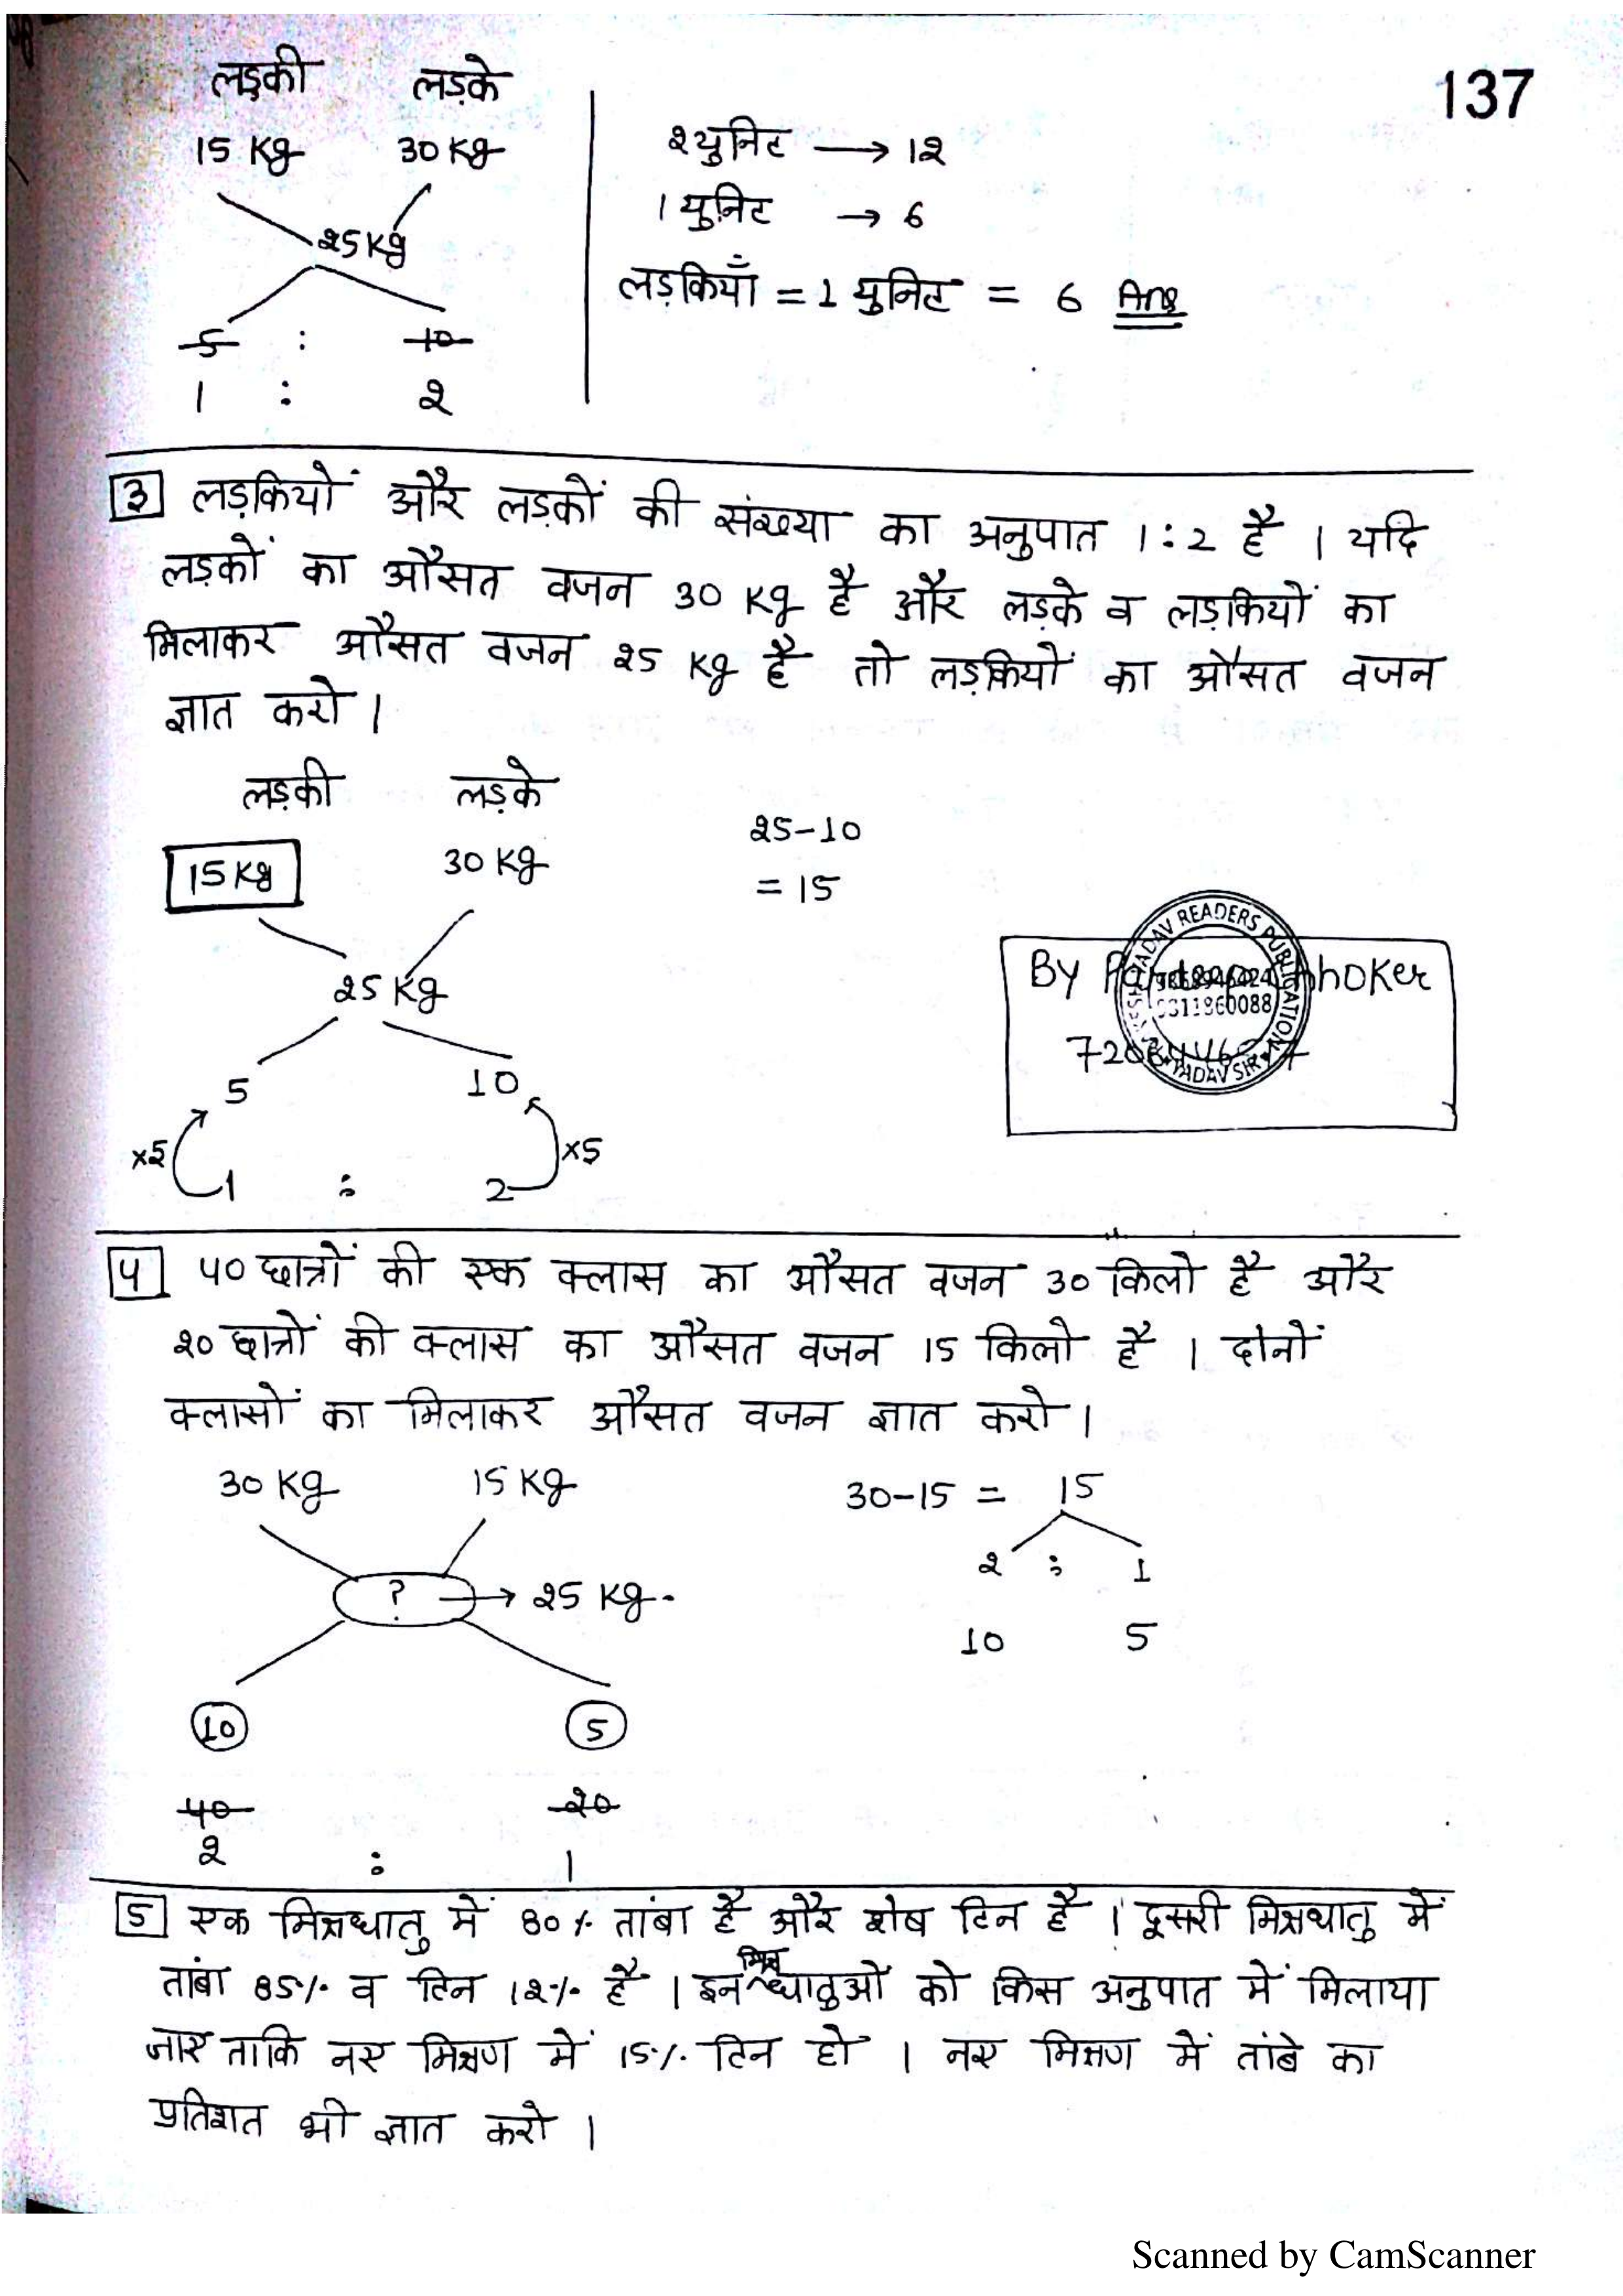 137
लड़की लड़के
15 Kg 30 Kg
25 Kg
5 : 10
1 : 2
2 युनिट → 12
1 युनिट → 6
लड़कियाँ = 1 युनिट = 6 Ans
3 लड़कियों और लड़कों की संख्या का अनुपात 1:2 है । यदि
लड़कों का औसत वजन 30 Kg है और लड़के व लड़कियों का
मिलाकर औसत वजन 25 Kg है तो लड़कियों का औसत वजन
ज्ञात करो ।
लड़की लड़के
15 Kg 30 Kg
25 Kg
5 10
×5 ×5
1 : 2
25-10
= 15
By Choker
YADAV READERS PUBLICATION
YADAV SIR
4 40 छात्रों की एक क्लास का औसत वजन 30 किलो है और
20 छात्रों की क्लास का औसत वजन 15 किलो है । दोनों
क्लासों का मिलाकर औसत वजन ज्ञात करो ।
30 Kg 15 Kg
? → 25 Kg.
10 5
40 20
2 : 1
30-15 = 15
2 : 1
10 5
5 एक मिश्रधातु में 80% तांबा है और शेष टिन है । दूसरी मिश्रधातु में
तांबा 85% व टिन 12% है । इन मिश्र धातुओं को किस अनुपात में मिलाया
जाए ताकि नए मिश्रण में 15% टिन हो । नए मिश्रण में तांबे का
प्रतिशत भी ज्ञात करो ।
Scanned by CamScanner